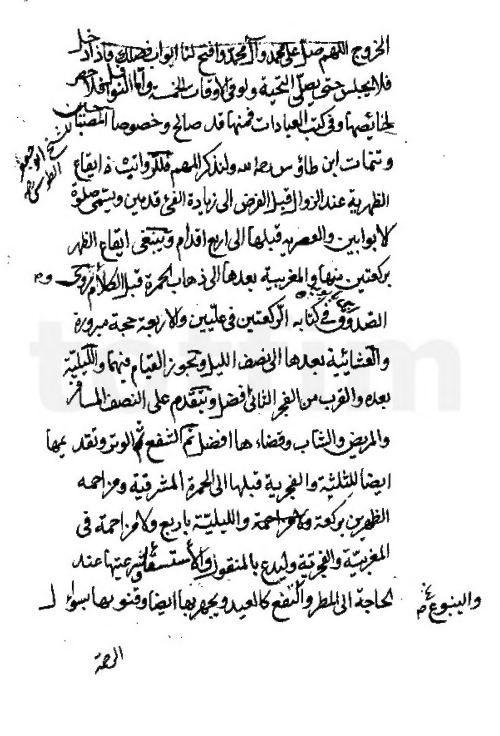 الخروج اللهم صل على محمد وآل محمد وافتح لنا ابواب فضلك فاذا دخل
فلا يجلس حتى يصلي التحية ولو في الاوقات الخمسة واما النوافل
لخصائصها وفي كتب العبادات فمنها قدر صالح وخصوصا المصباحين
للشيخ ابو جعفر
الطوسي
وتتمات ابن طاؤس ولنذكر المهم فللرواتب ايقاع
الظهرية عند الزوال قبل الفرض الى زيادة الفئ قدمين ويسمى صلوة
الاوابين والعصرية قبلها الى اربع اقدام وينبغي ايقاع الظهر
بركعتين منها والمغربية بعدها الى ذهاب الحمرة قبل الكلام
الصدوق في كتابه الركعتين في عليين والاربعة حجة مبرورة
والعشائية بعدها الى نصف الليل وتجوز القيام فيها والليلية
بعده والقرب من الفجر الثاني افضل ويتقدم على النصف المسافر
والمريض والشاب وقضاءها افضل ثم الشفع ثم الوتر وتقديمها
ايضا للثلثة والفجرية قبلها الى الحمرة المشرقية ومزاحمه
الظهرين بركعة والليلية باربع ولا مزاحمة في
المغربية والفجرية وليدع بالمنقول والاستسقاء وشرعيتها عند
الحاجة الى المطر والينبوع كالعيد ويجهر بها ايضا وقنوتها بسؤال
والينبوع
الرحمة